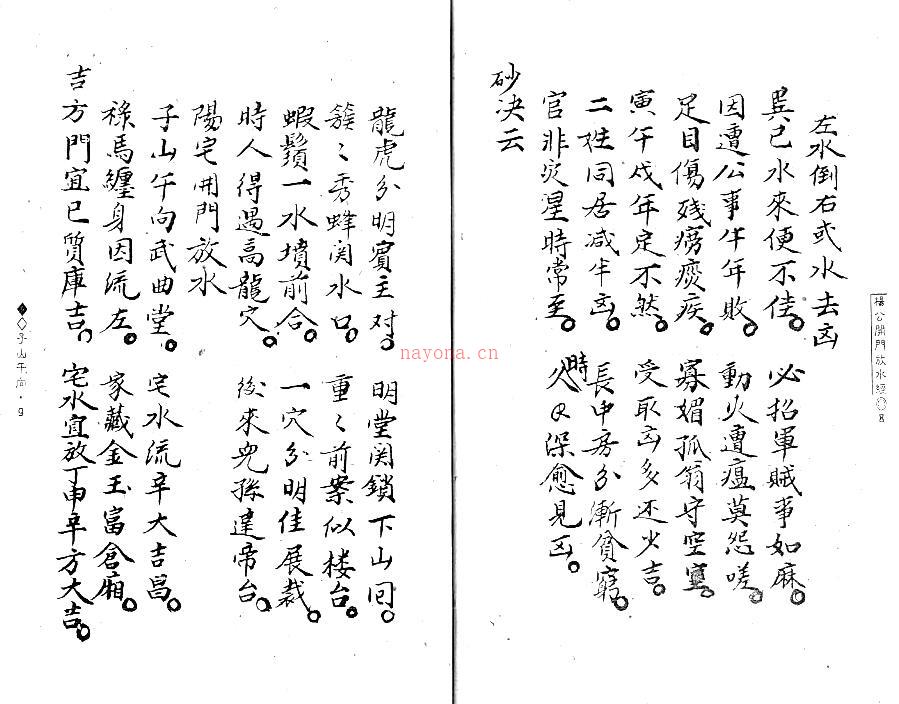 楊公開門放水經◇8
左水倒右或水去凶
巽巳水來便不佳。 必招軍賊事如麻。
因遭公事年年敗。 動火遭瘟莫怨嗟。
足目傷殘癆痰疾。 寡媚孤翁守空室。
寅午戌年定不然。 受取凶多还少吉。
二姓同居减半凶。 長中房分漸貧窮。
官非灾星時常至。 時久日深愈見凶。
砂决云
龍虎分明賓主对。 明堂関鎖下山囘。
簇〻秀蜂関水口。 重〻前案似楼台。
蝦鬚一水墳前合。 一穴分明佳展裁。
時人得遇高龍穴。 後來兒孫建帝台。
陽宅開門放水
子山午向武曲堂。 宅水流辛大吉昌。
祿馬纏身因流左。 家藏金玉富倉廂。
吉方門宜巳質庫吉。 宅水宜放丁申辛方大吉。
◇子山午向·9
nayona.cn